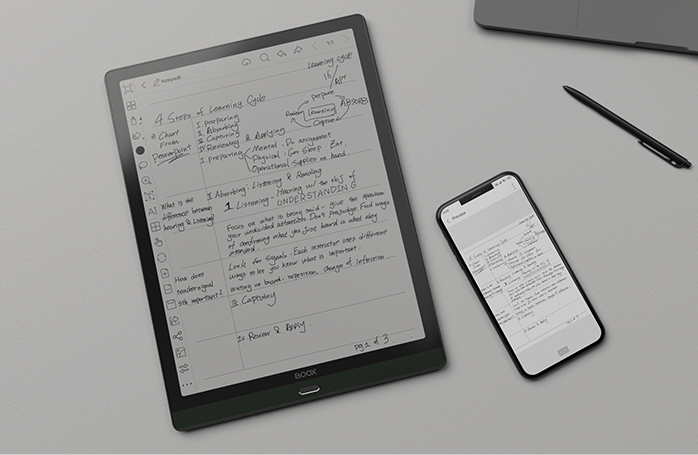 Notepad1
Learning Cycle
16/
APP
4 Steps of Learning Cycle
* Chart
From
PowerPoint
I. preparing
II. Absorbing
III. Capturing
IV. Reviewing & Applying
prepare
Review
Learning
ABSORB
Capture
I. preparing
Mental. Do assignment
Physical. Get Sleep Eat.
Operational. Supplies on hand.
II Absorbing: Listening & Reading
What is the
difference between
hearing & Listening
1. Listening: Hearing w/ the obj of
UNDERSTANDING
Focus on what is being said - give the speaker
your undivided attention. Don't Prejudge. Find ways
of confirming what you just heard is what they
intended
Look for Signals. Each instructor uses different
ways to let you know what is important.
How does
teacher signal
Sth important?
Writing on board, repetition, changes of inflection
III. Capturing
IV. Review & Apply
pg 1 of 3
BOOX
Preview